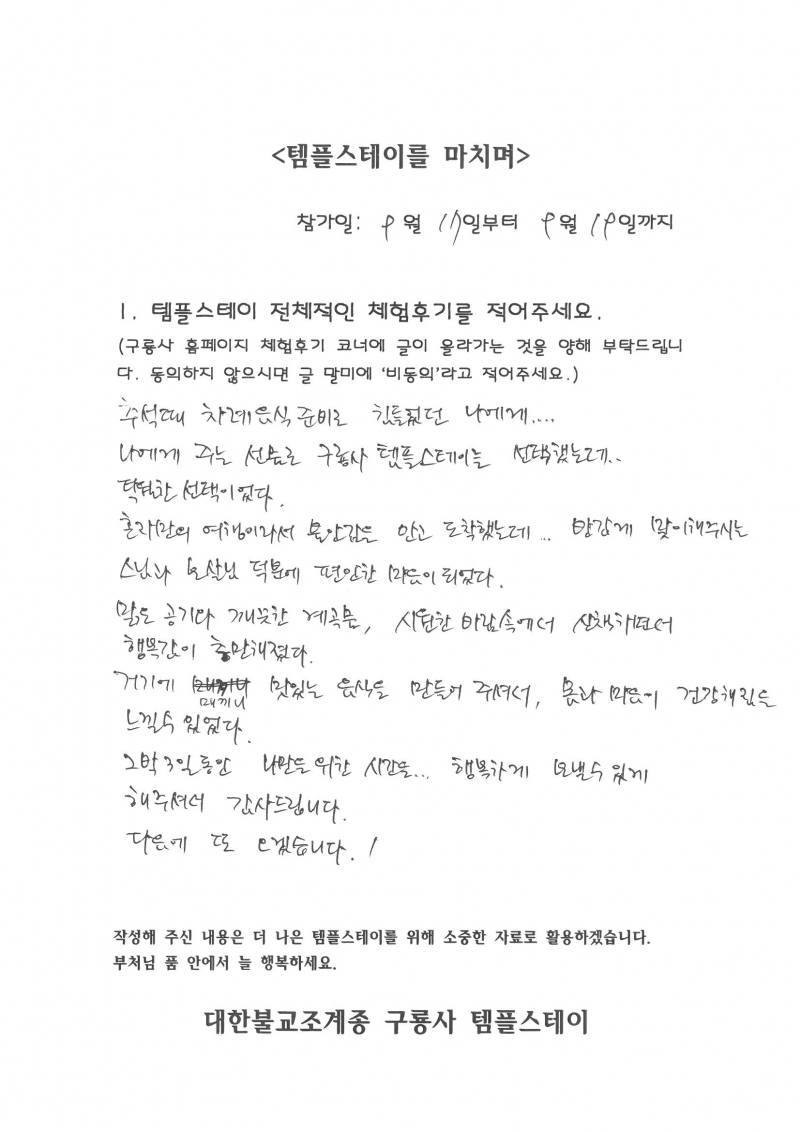 <템플스테이를 마치며>
참가일: 9월 17일부터 9월 19일까지
1. 템플스테이 전체적인 체험후기를 적어주세요.
(구룡사 홈페이지 체험후기 코너에 글이 올라가는 것을 양해 부탁드립니
다. 동의하지 않으시면 글 말미에 '비동의'라고 적어주세요.)
추석때 차례음식 준비로 힘들었던 나에게....
나에게 주는 선물로 구룡사 템플스테이를 선택했는데..
탁월한 선택이었다.
혼자만의 여행이라서 불안감을 안고 도착했는데... 반갑게 맞이해주시는
스님과 보살님 덕분에 편안한 마음이 되었다.
맑은 공기다 깨끗한 계곡물, 시원한 바람속에서 산책하면서
행복감이 충만해졌다.
거기에 매끼니 맛있는 음식을 만들어 주셔서, 몸과 마음이 건강해짐을
느낄수 있었다.
2박 3일동안 나만을 위한 시간을... 행복하게 보낼수 있게
해주셔서 감사드립니다.
다음에 또 오겠습니다. !
작성해 주신 내용은 더 나은 템플스테이를 위해 소중한 자료로 활용하겠습니다.
부처님 품 안에서 늘 행복하세요.
대한불교조계종 구룡사 템플스테이